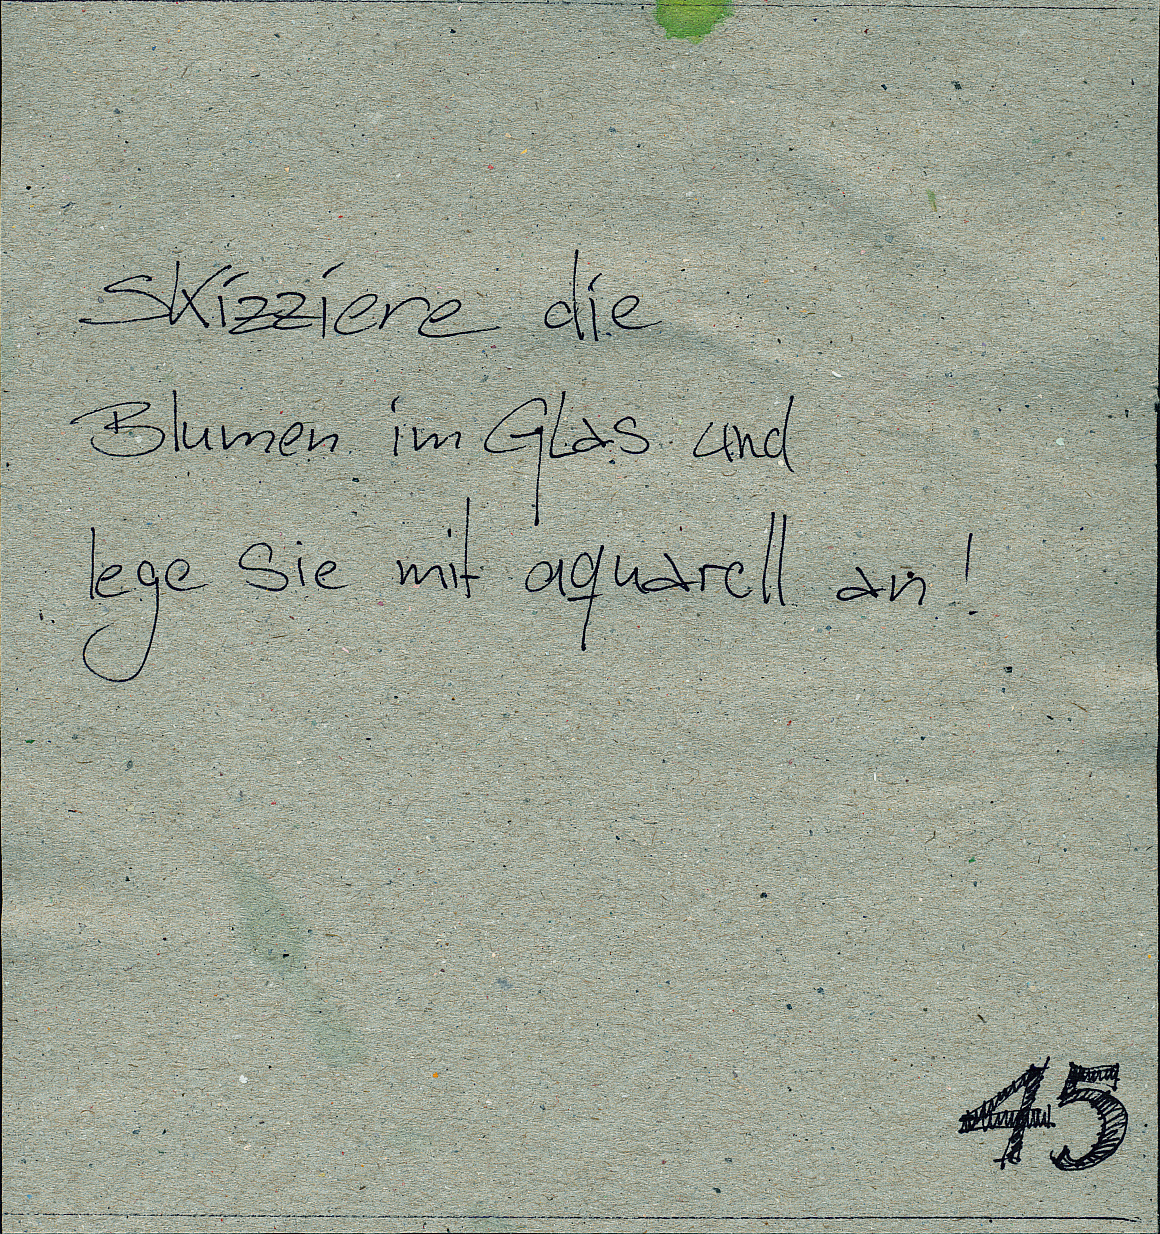 Skizziere die
Blumen im Glas und
lege Sie mit aquarell an!
45